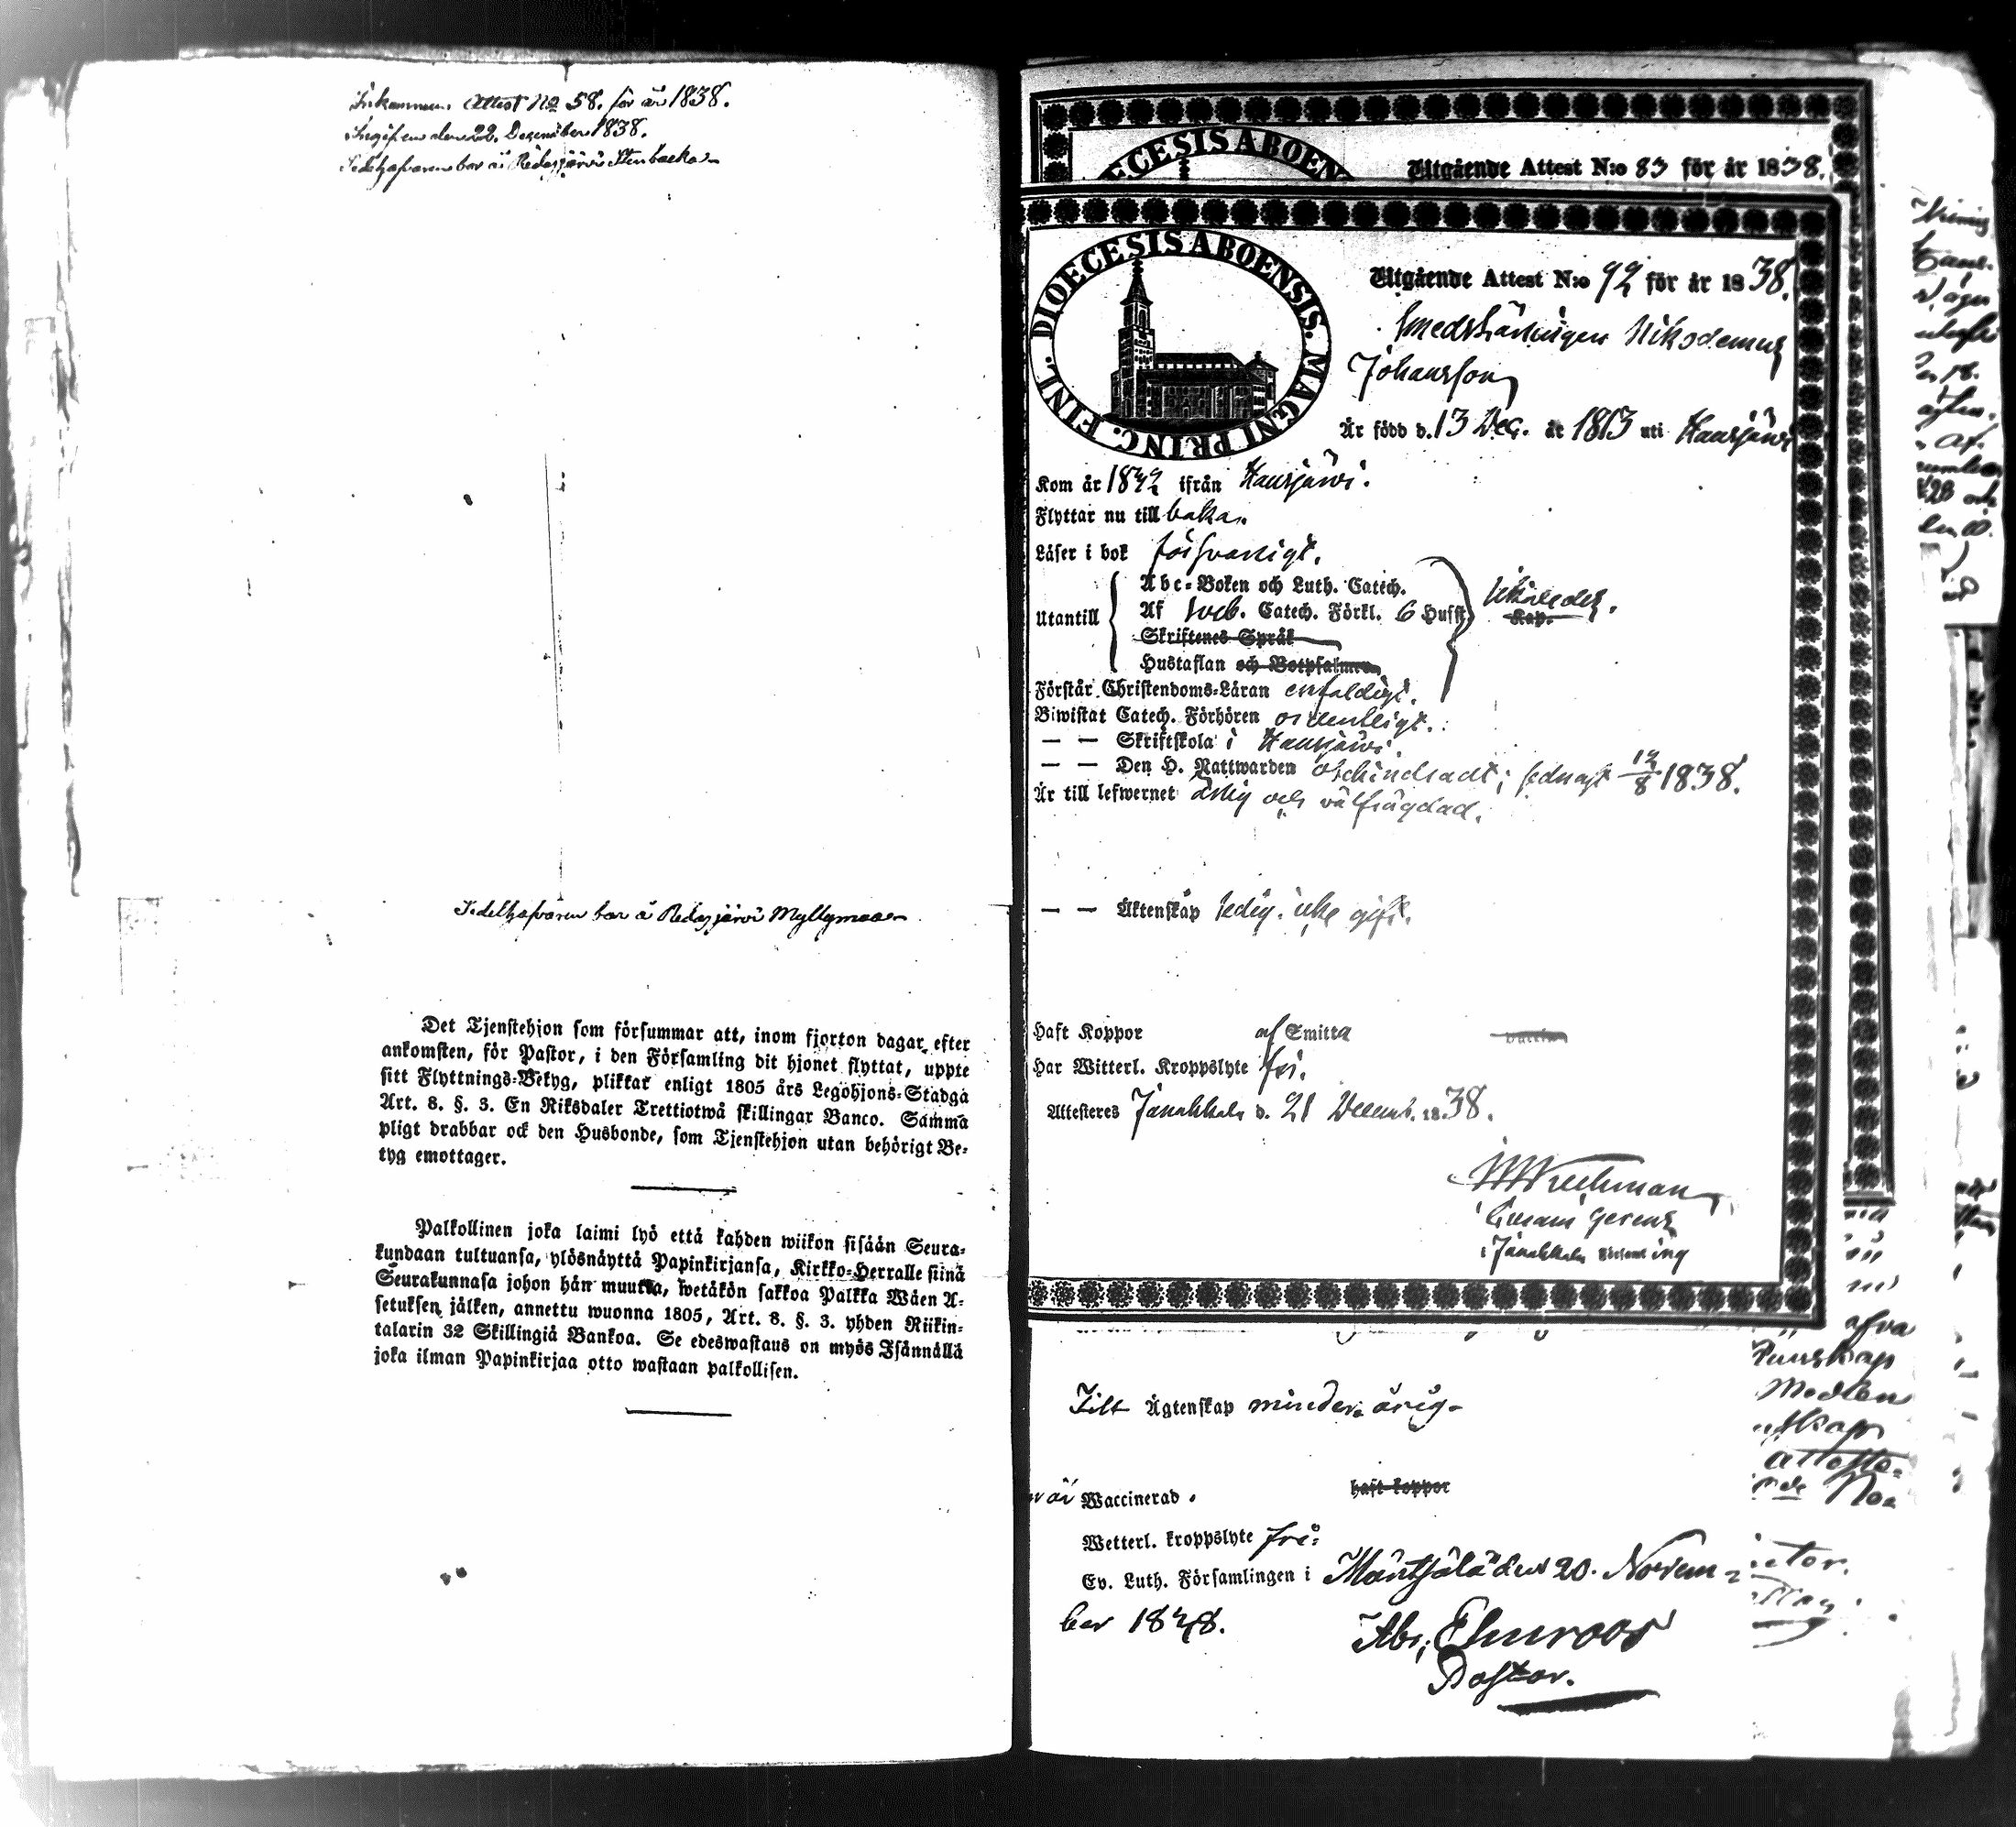 Inkommen Attest No 58. för år 1838.
Ingifven den 22. December 1838.
Sedelhafvaren bor å Ridasjärvi Stenbacka
Sedelhafvaren bor å Ridasjärvi Myllymaa
Det Tjenstehjon som försummar att, inom fjorton dagar efter
ankomsten, för Pastor, i den Församling dit hjonet flyttat, uppte
sitt Flyttnings-Betyg, pliktar enligt 1805 års Legohjons-Stadga
Art. 8. §. 3. En Riksdaler Trettiotwå skillingar Banco. Samma
pligt drabbar ock den Husbonde, som Tjenstehjon utan behörigt Be-
tyg emottager.
Palkollinen joka laimi lyö että kahden wiikon sisään Seura-
kundaan tultuansa, ylösnäyttä Papinkirjansa, Kirkko-Herralle siinä
Seurakunnasa johon hän muutta, wetäkön sakkoa Palkka Wäen A-
setuksen jälken, annettu wuonna 1805, Art. 8. §. 3. yhden Riikin-
talarin 32 Skillingiä Bankoa. Se edeswastaus on myös Isännällä
joka ilman Papinkirjaa otto wastaan palkollisen.
ECESIS ABOEN
Utgående Attest N:o 83 för år 1838.
FINL. DIOECESIS ABOENSIS. MAGNI PRINC.
Utgående Attest N:o 92 för år 1838.
Smedslärlingen Nikodemus
Johansson
Är född d. 13 Dec. år 1813 uti Hausjärvi
Kom år 18 ifrån Hausjärvi.
Flyttar nu till baka.
Läser i bok försvarligt.
Utantill
Abc-Boken och Luth. Catech.
Af Sveb. Catech. Förkl. 6 Husst
Kap.
Skriftenes Språk
Hustaflan och Botpsalmen
Förstår Christendoms-Läran enfaldigt.
Biwistat Catech. Förhören ordentligt.
— — Skriftskola i Hausjärvi.
— — Den H. Nattwarden ohindradt; sednast 12/8 1838.
Är till lefwernet ärlig och välfrägdad.
— — Äktenskap ledig. icke gift.
Haft Koppor af Smitta
Har Witterl. Kroppslyte fri.
Attesteres Janakkala d. 21 Decemb. 1838.
i Janakkala Församling
Till Ägtenskap minderårig
är Waccinerad. haft koppor
Wetterl. kroppslyte fri:
Ev. Luth. Församlingen i Mäntsälä den 20. Novem-
ber 1838.
Abr: Elmroos
Pastor.